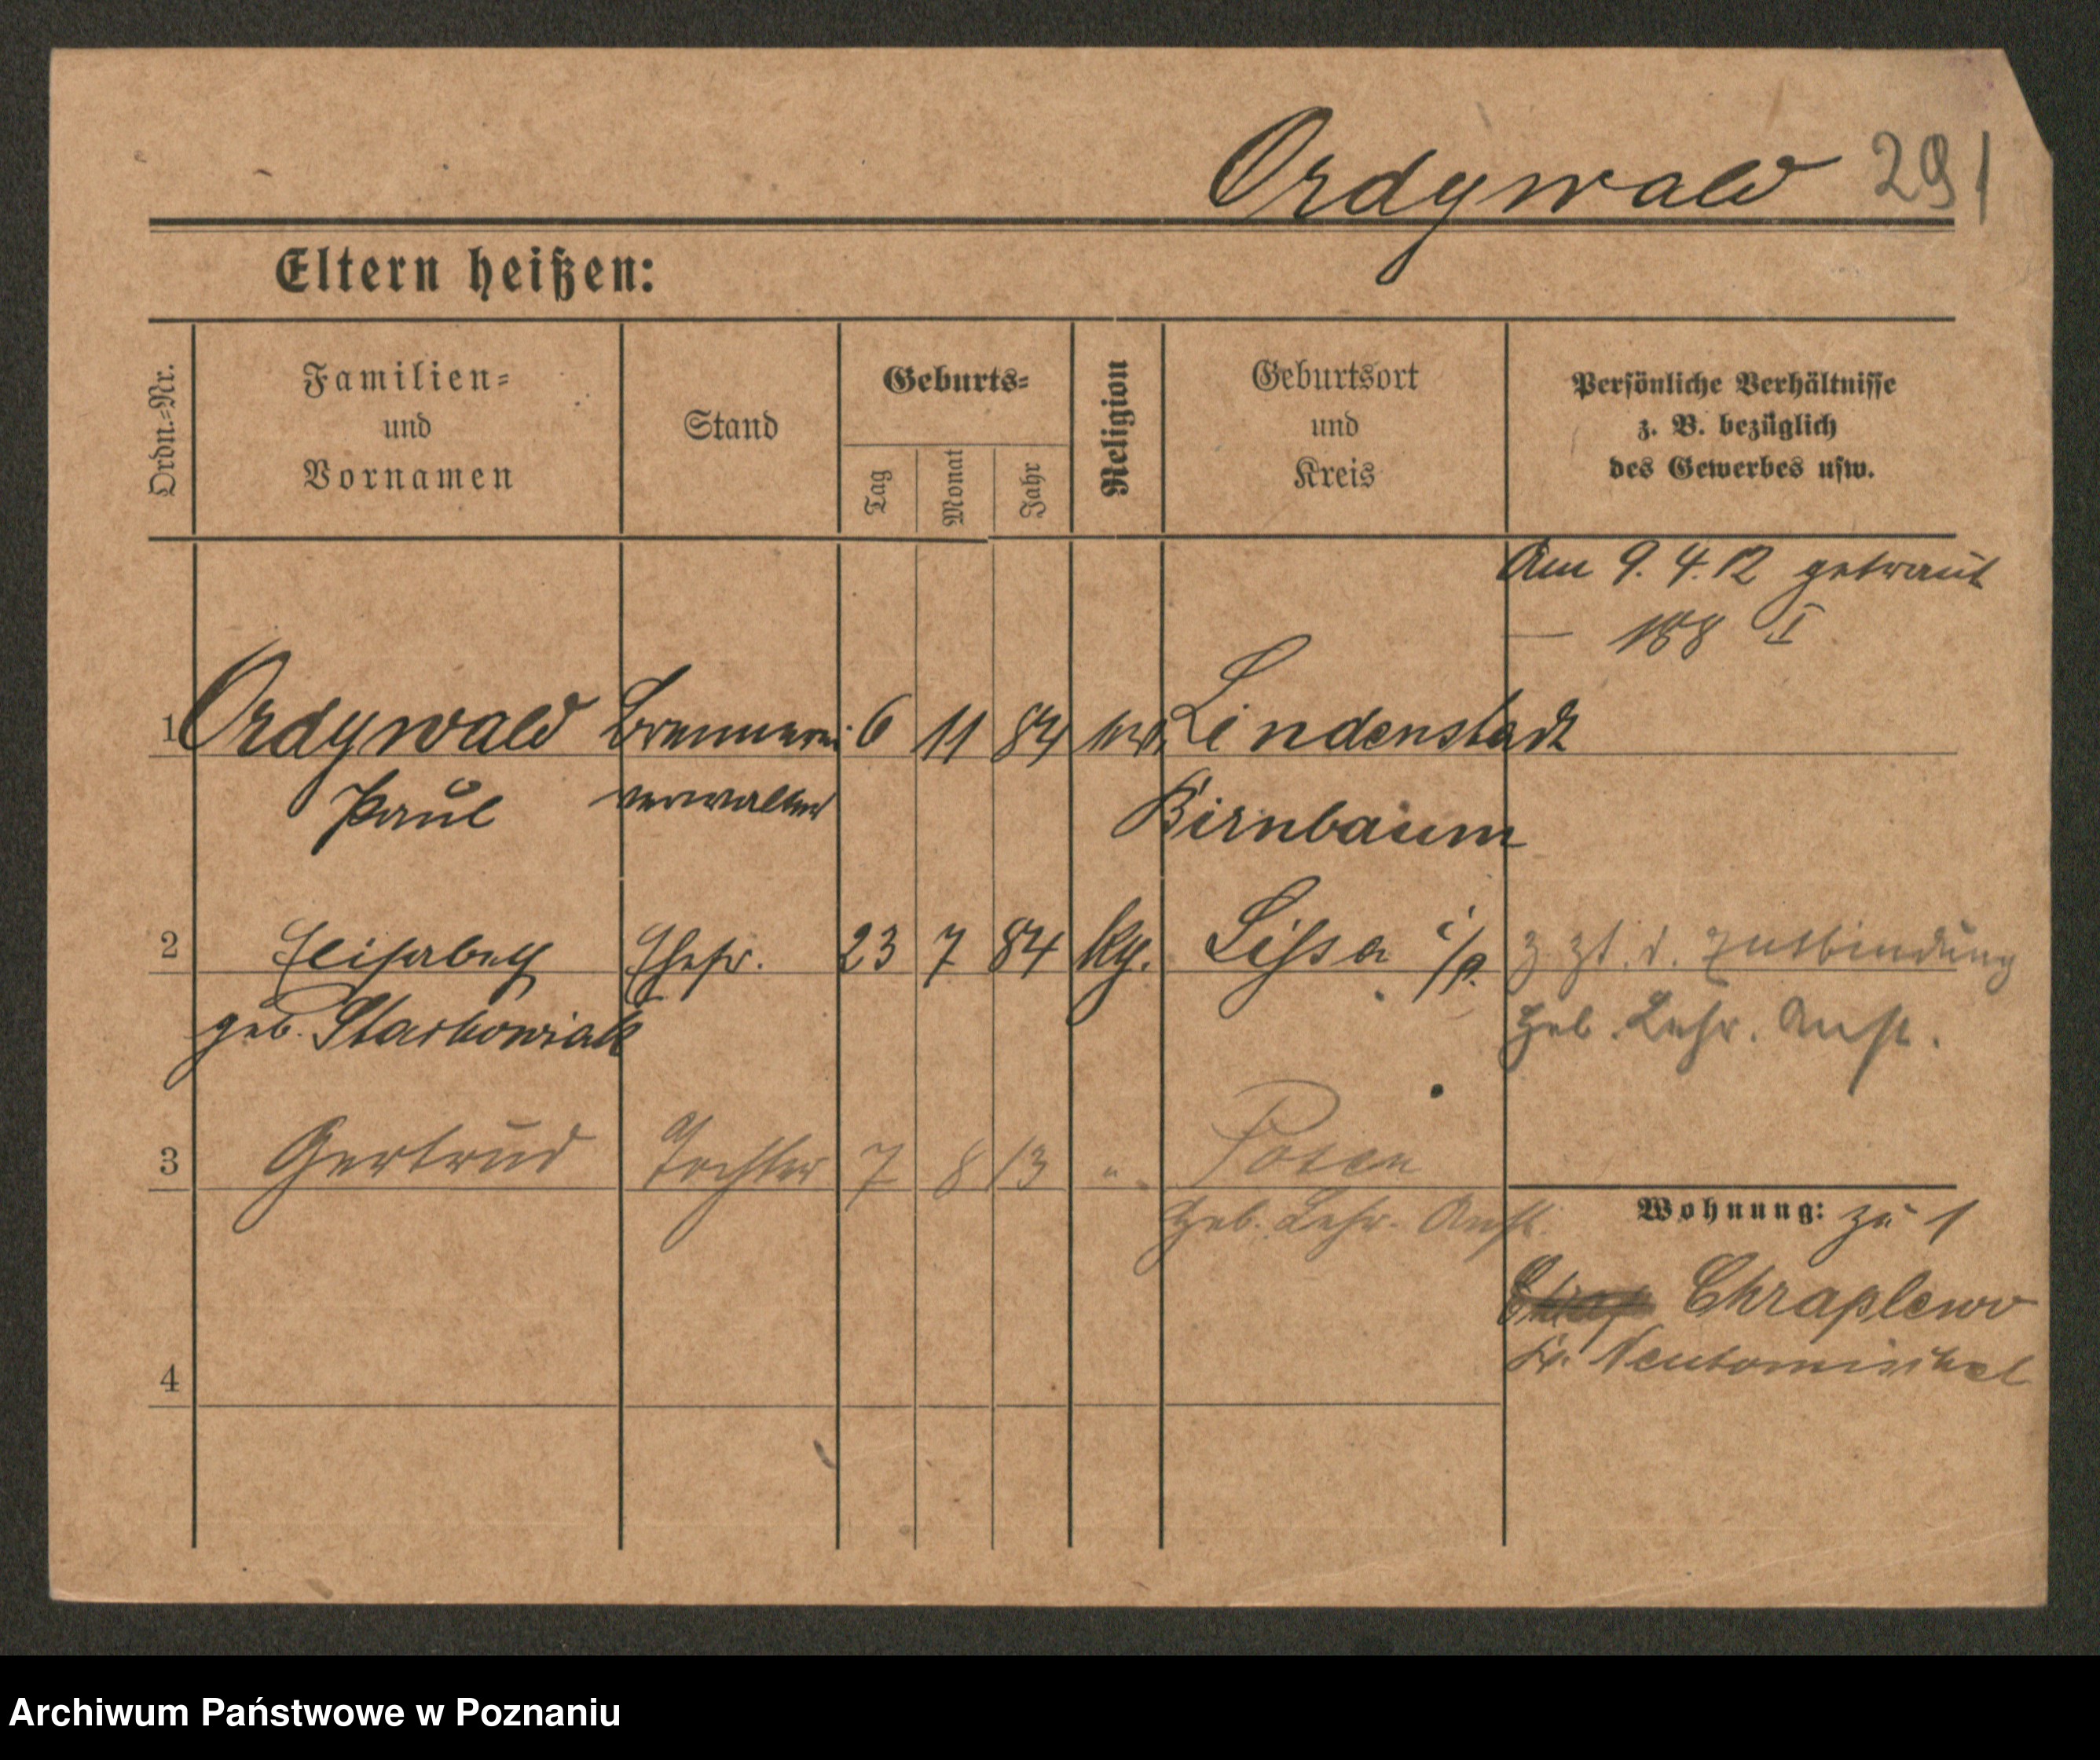 Ordywald 291
Eltern heißen:
Ordn.=Nr.
Familien=
und
Vornamen
Stand
Geburts=
Tag
Monat
Jahr
Religion
Geburtsort
und
Kreis
Persönliche Verhältnisse
z. B. bezüglich
des Gewerbes usw.
Am 9. 4. 12 getraut
— 188 I
1 Ordywald Brennerei 6 11 84 Lindenstadt
Paul verwalter Birnbaum
2 Elisabeth Ehefr. 23 7 84 kth. Lissa i/p. z. Zt. d. Entbindung
geb. Starkowiak Heb. Lehr. Anst.
3 Gertrud Tochter 7 8 13 " Posen
Heb. Lehr. Anst.
Wohnung: zu 1
Chraplewo
Kr. Neutomischel
4
Archiwum Państwowe w Poznaniu